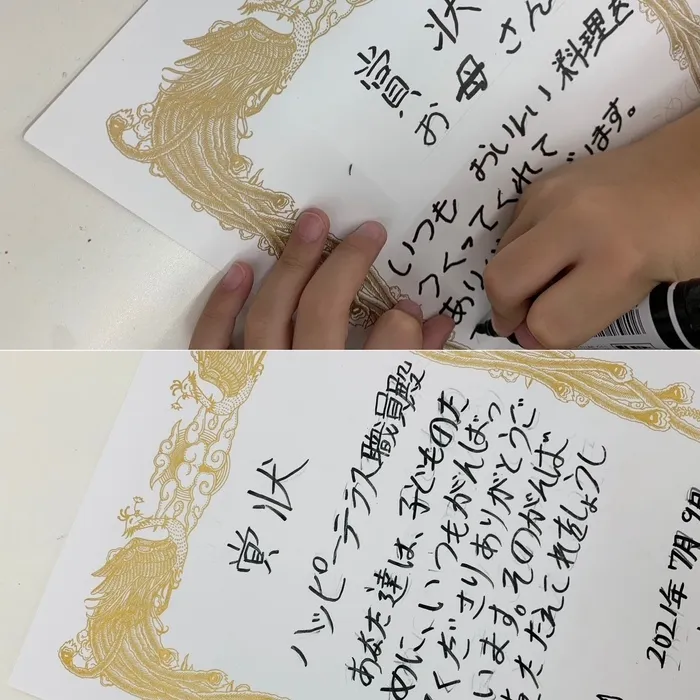 賞状
お母さん
いつも おいしい 料理を
つくってくれて
あり ます。
賞状
ハッピーテラス職員殿
あなた達は、子どものた
めに、いつもがんばっ
くださりありがとうご
います。そのがんば
たたえこれをしょうし
2021年7月9日